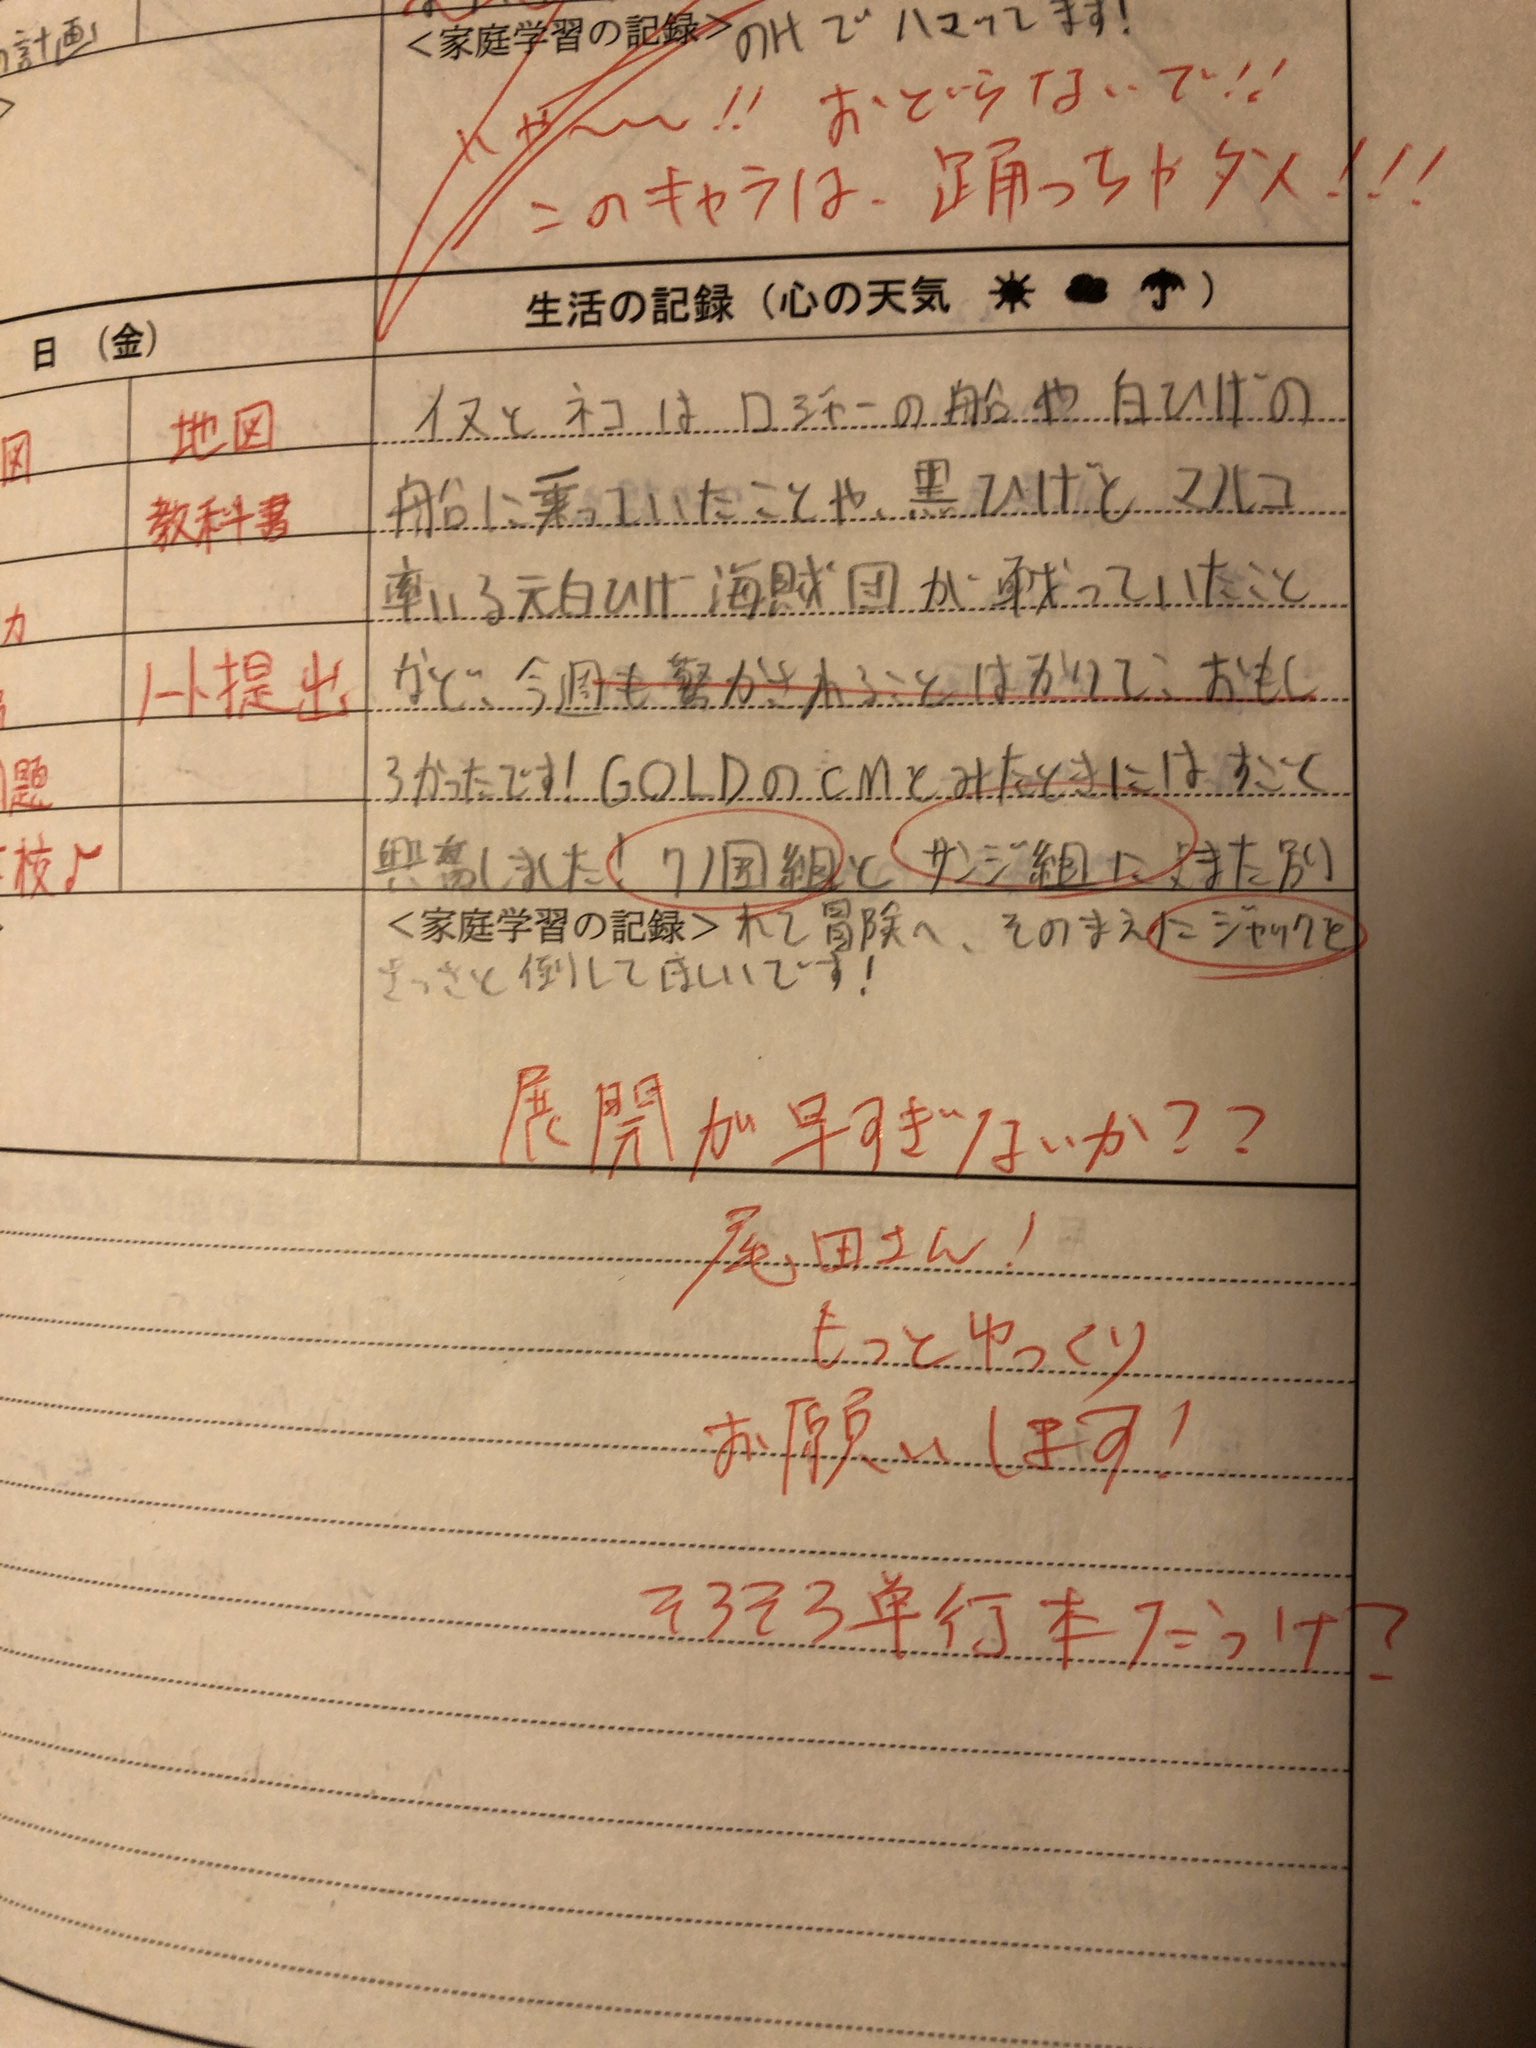 計画
<家庭学習の記録>のHでハマってます!
いや〜〜!! おどらないで!!
このキャラは、踊っちゃダメ!!!
日 (金)
生活の記録(心の天気 )
図
地図
イヌとネコはロジャーの船や白ひげの
教科書
船に乗っていたことや、黒ひげとマルコ
力
率いる元白ひげ海賊団が戦っていたこと
ノート提出
など、今週も驚かされることばかりで、おもし
題
ろかったです!GOLDのCMとみたときにはすごく
校♪
興奮しました!ワノ国組とサンジ組にまた別
<家庭学習の記録>れて冒険へ、そのまえにジャックを
さっさと倒してほしいです!
展開が早すぎないか??
尾田さん!
もっとゆっくり
お願いします!
そろそろ単行本だっけ?